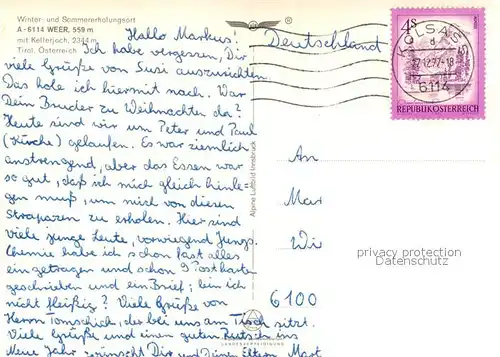 Winter- und Sommererholungsort
A-6114 WEER, 559 m
mit Kellerjoch, 2344 m
Tirol, Österreich
Hallo Markus!
Ich habe vergessen, Dir
viele Grüße von Susi auszurichten.
Das hole ich hiermit nach. War
Dein Bruder zu Weihnachten da?
Heute sind wir um Peter und Paul
(Kirche) gelaufen. Es war ziemlich
anstrengend, aber das Essen war
so gut, daß ich mich gleich hinle-
gen muß, um mich von diesen
Strapazen zu erholen. Hier sind
viele junge Leute, vorwiegend Jungs.
Chemie habe ich schon fast alles
eingetragen und schon 9 Postkarten
geschrieben und ein Brief; bin ich
nicht fleißig? Viele Grüße von
Herrn, der bei uns am Tisch sitzt.
Viele Grüße und einen guten Rutsch ins
Neue Jahr wünscht Dir und Deinen Eltern
Alpine Luftbild Innsbruck
Deutschland
4S
REPUBLIK ÖSTERREICH
KOLSASS
27.12.77-18
6114
An
Mar
Wi
privacy protection
Datenschutz
6100